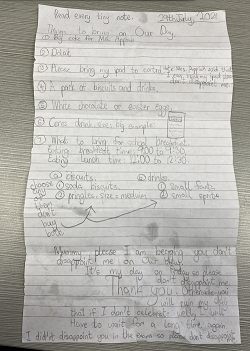 Read every tiny note. 29th July, 2021
Items to bring on Our Day
① Big cake for Mr. Appiah
② Drink
③ Please bring my ipad to
④ A pack of biscuits and drinks
⑤ White chocolate or easter eggs
⑥ Cans drink, size, big example
⑦ What to bring for school Breakfast
Eating breakfast time: 9:00 to 9:30
Eating lunch time: 12:00 to 12:30
① biscuits. ② drinks.
choose
① soda biscuits. ① small fanta
② pringles, size = medium ② small sprite
don't
buy
both
Mummy please I am begging you don't
disappoint me on Our Day.
It's my day on Friday so please
don't disappoint me.
Thank you. Otherwise you
will ruin my day
that if I don't celebrate well, I will
Have to wait for a long time again
I didn't disappoint you in the exam so please don't disappoint me